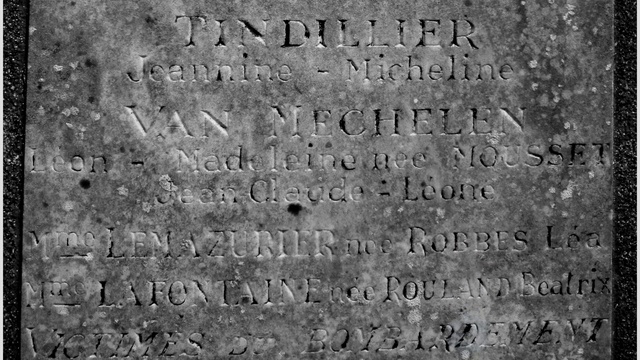 TINDILLIER
Jeannine - Micheline
VAN MECHELEN
Léon - Madeleine nee MOUSSET
Jean Claude - Léone
Mme LEMAZURIER nee ROBBES Léa
Mme LAFONTAINE née ROULAND Beatrix
VICTIMES DU BOMBARDEMENT